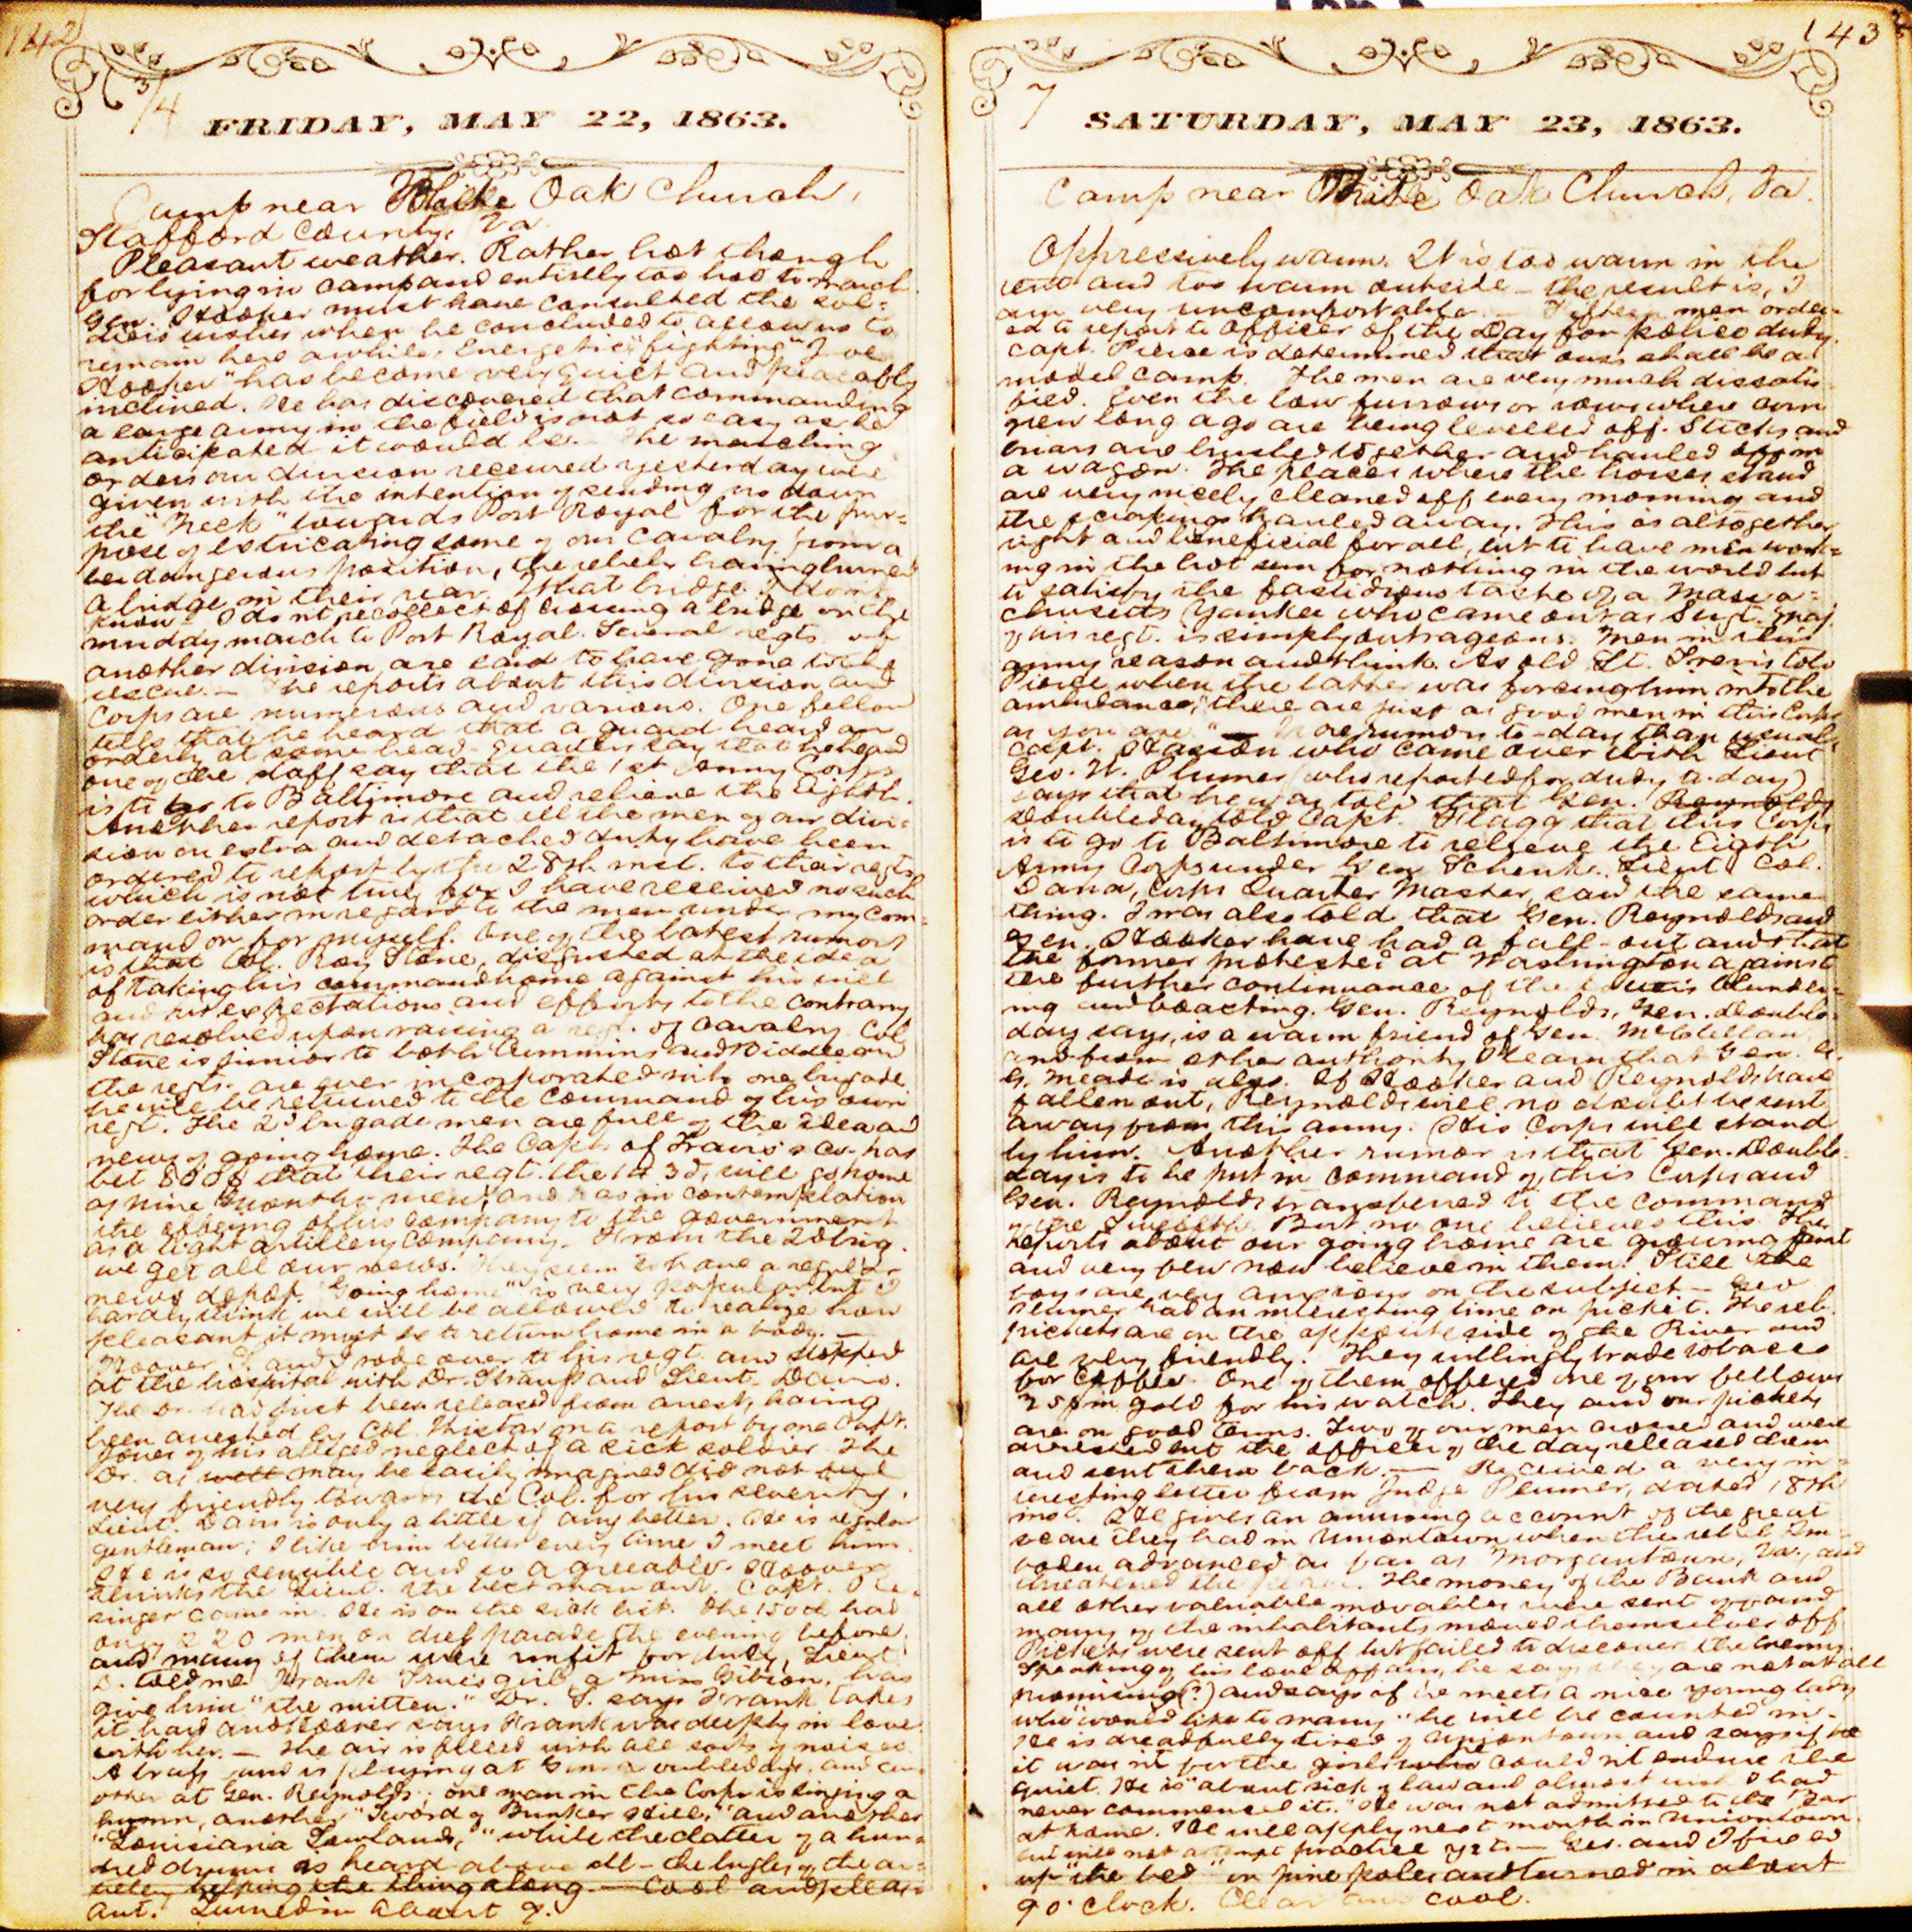 142
FRIDAY, MAY 22, 1863.
Camp near White Oak Church,
Stafford County, Va
Pleasant weather. Rather hot though
for lying in camp and entirely too hot to march.
Gen. Hooker must have consulted the sol-
diers wishes when he concluded to allow us to
remain here awhile. Energetic "fighting" Joe
Hooker" has become very quiet and peaceably
inclined. He has discovered that commanding
a large army in the field is not so easy as he
anticipated it would be. — The marching
orders our division received yesterday were
given with the intention of sending us down
the "Neck" towards Port Royal for the pur-
pose of extricating some of our cavalry from a
dangerous position, the rebels having burned
a bridge in their rear. What bridge I don't
know. I do n't recollect of crossing a bridge on the
muddy march to Port Royal. Several regts. of
another division are said to have gone to the
rescue. — The reports about this division and
Corps are numerous and various. One fellow
tells that he heard that a guard heard an
orderly at some head-quarters say that he heard
one of the staff say that the 1st Army Corps
is to go to Baltimore and relieve the Eighth.
Another report is that all the men of our divi-
sion on extra and detached duty have been
ordered to report by the 28th inst. to their regts.
which is not true for I have received no such
order either in regard to the men under my com-
mand or for myself. One of the latest rumors
is that Col. Roy Stone, disgusted at the idea
of taking his command home against his will
and expectations and efforts to the contrary
has resolved upon raising a regt. of cavalry. Col
Stone is junior to both Cummins and Biddle and
the regts. are ever incorporated into one brigade
he will be returned to the command of his own
regt. The 2d brigade men are full of the idea and
news of going home. The Capt. of Travis's co. has
bet that their regt. the 143d, will go home
as nine months men, and has in contemplation
the offering of his company to the government
as a light artillery company. From the 2d brig.
we get all our news. They seem to have a regular
news depot. "Going home" is very popular but I
hardly think we will be allowed to realize how
pleasant it must be to return home in a body. —
Hoover and I rode over to his regt. and stopped
at the hospital with Dr. Strauss and Lieut. Davis.
The Dr. had just been released from arrest, having
been arrested by Col. on a report by one Capt.
Jones of his alleged neglect of a sick soldier. The
Dr. as well may be easily imagined did not feel
very friendly towards the Col. for his severity.
Lieut. Davis is only a little if any better. He is regular
gentleman; I like him better every time I meet him.
He is so sensible and so agreeable. Hoover
thinks the Lieut. the best man out. Capt.
singer came in. He is on the sick list. The 150th had
only 220 men on dref parade the evening before,
and many of them were unfit for duty, Lieut.
D. told me Frank girl, a Miss Gibson, has
give him "the mitten." Dr. S. says Frank takes
it hard and Hoover says Frank was deeply in love
with her. — The air is filled with all sorts of noises.
A brass band is playing at Gen. Doubleday's, and an-
other at Gen. Reynolds; one man in the Corps is singing a
hymn, another "Sword of Bunker Hill," and another
"Louisiana Lowlands," while the clatter of a hun-
dred drums is heard above all — the bugles of the ar-
tillery helping the thing along. — Cool and pleas-
ant. Turned in about 9.
143
7
SATURDAY, MAY 23, 1863.
Camp near White Oak Church, Va.
Oppressively warm. It is too warm in the
tent and too warm outside — the result is, I
am very uncomfortable. — Fifteen men order-
ed to report to Officer of the Day for police duty.
Capt. Pierce is determined that ours shall be a
model camp. The men are very much dissatis-
fied. Even the low furrows or rows where corn
grew long ago are being levelled off. Sticks and
briars are brushed together and hauled off in
a wagon. The places where the horses stand
are very nicely cleaned off every morning and
the scrapings hauled away. This is altogether
right and beneficial for all, but to have men work-
ing in the hot sun for nothing in the world but
to satisfy the fastidious taste of a Massa-
chusetts Yankee who came out as Sergt. Maj.
of his regt. is simply outrageous. Men in this
army reason and think. As old Lt. told
Pierce when the latter was forcing him into the
ambulance, "there are just as good men in this Corps
as you are." — More rumors to-day than usual.
Capt. who came over with Lieut
Geo. W. Plumer (who reported for duty to-day)
says that he was told that Gen. Reynolds
Doubleday told Capt. Flagg that this Corps
is to go to Baltimore to relieve the Eighth
Army Corps under Gen Schenk. Lieut. Col.
Dana, Corps Quarter Master, said the same
thing. I was also told that Gen. Reynolds and
Gen. Hooker have had a fall-out and that
the former protested at Washington against
the further continuance of the latter's blunder-
ing and boasting. Gen. Reynolds, Gen. Double-
day says, is a warm friend of Gen. McClellan,
and from other authority I learn that Gen. G.
G. Meade is also. If Hooker and Reynolds have
fallen out, Reynolds will no doubt be sent
away from this army. His Corps will stand
by him. Another rumor is that Gen. Double-
day is to be put in command of this Corps and
Gen. Reynolds transferred to the command
of the Twelfth. But no one believes this. The
reports about our going home are growing faint
and very few now believe in them. Still the
boys are very anxious on the subject — Geo
Plumer had an interesting time on picket. The reb.
pickets are on the opposite side of the River and
are very friendly. They willingly trade tobacco
for coffee. One of them offered one of our fellows
25$ in gold for his watch. They and our pickets
are on good terms. Two of our men crossed and were
arrested but the officer of the day released them
and sent them back. — Received a very in-
teresting letter from Judge Plumer, dated 18th
inst. He gives an amusing account of the great
scare they had in Uniontown when the rebel Im-
boden advanced as far as Morgantown, Va., and
threatened the place. The money of the Bank and
all other valuable movables were sent off and
many of the inhabitants moved themselves off.
Pickets were sent off but failed to discover the enemy.
Speaking of his love affairs, he says they are not at all
promising(?) and says if he meets a nice young lady
who "would like to marry" he will be counted in.
He is dreadfully tired of Uniontown and says if
it was n't for the girls who could n't endure the
quiet. He is "about sick of law and almost wish I had
never commenced it." He was not admitted to the Bar
at home. He will apply next month in Uniontown
but will not attempt practice yet. — Geo. and I fixed
up "the bed" on pine poles and turned in about
9 o'clock. Clear and cool.